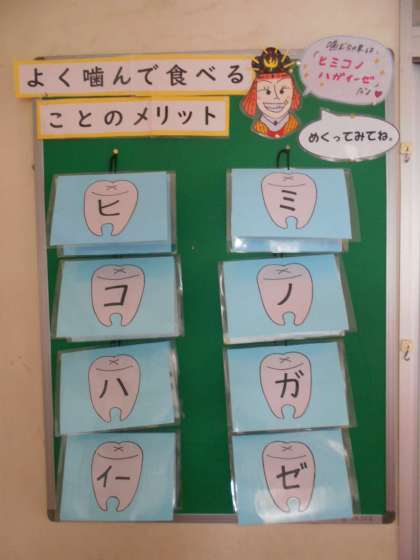 よく噛んで食べる
ことのメリット
「ヒミコノ
ハガイーゼ」
めくってみてね。
ヒ
ミ
コ
ノ
ハ
ガ
イー
ゼ